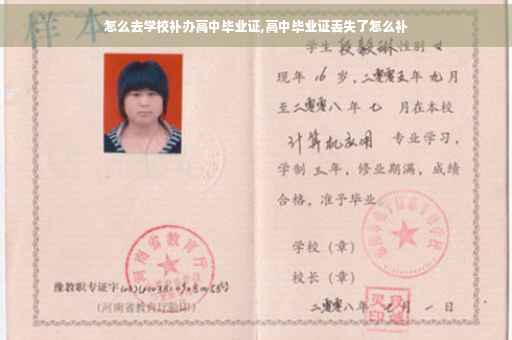 样本
怎么去学校补办高中毕业证,高中毕业证丢失了怎么补
学生 段毅琳 性别 女
现年 16 岁,二零零五年 九月
至二零零八年 七 月在本校
计算机应用 专业学习,
学制 三年,修业期满,成绩
合格,准予毕业
学校(章)
校长(章)
二零零八年 七 月 一 日
河南省教育厅
豫教职专证字
(河南省教育厅验印)